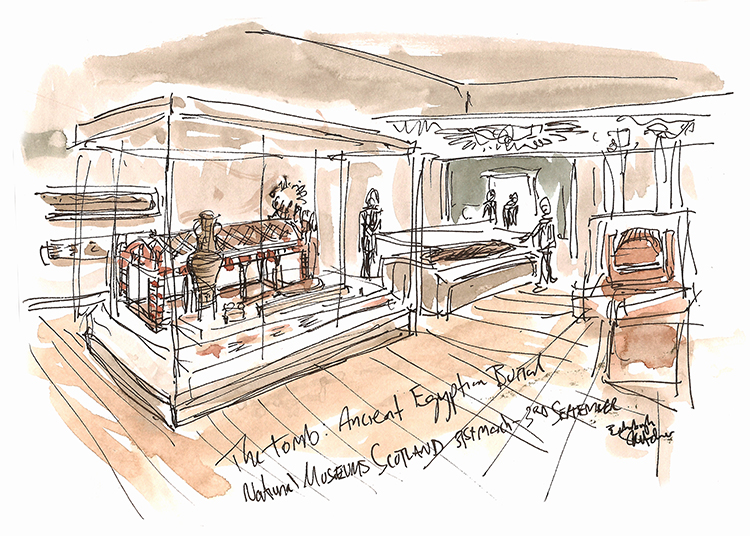 The tomb: Ancient Egyptian Burial
National Museums Scotland 31st March - 3rd September
Edinburgh
Sketcher